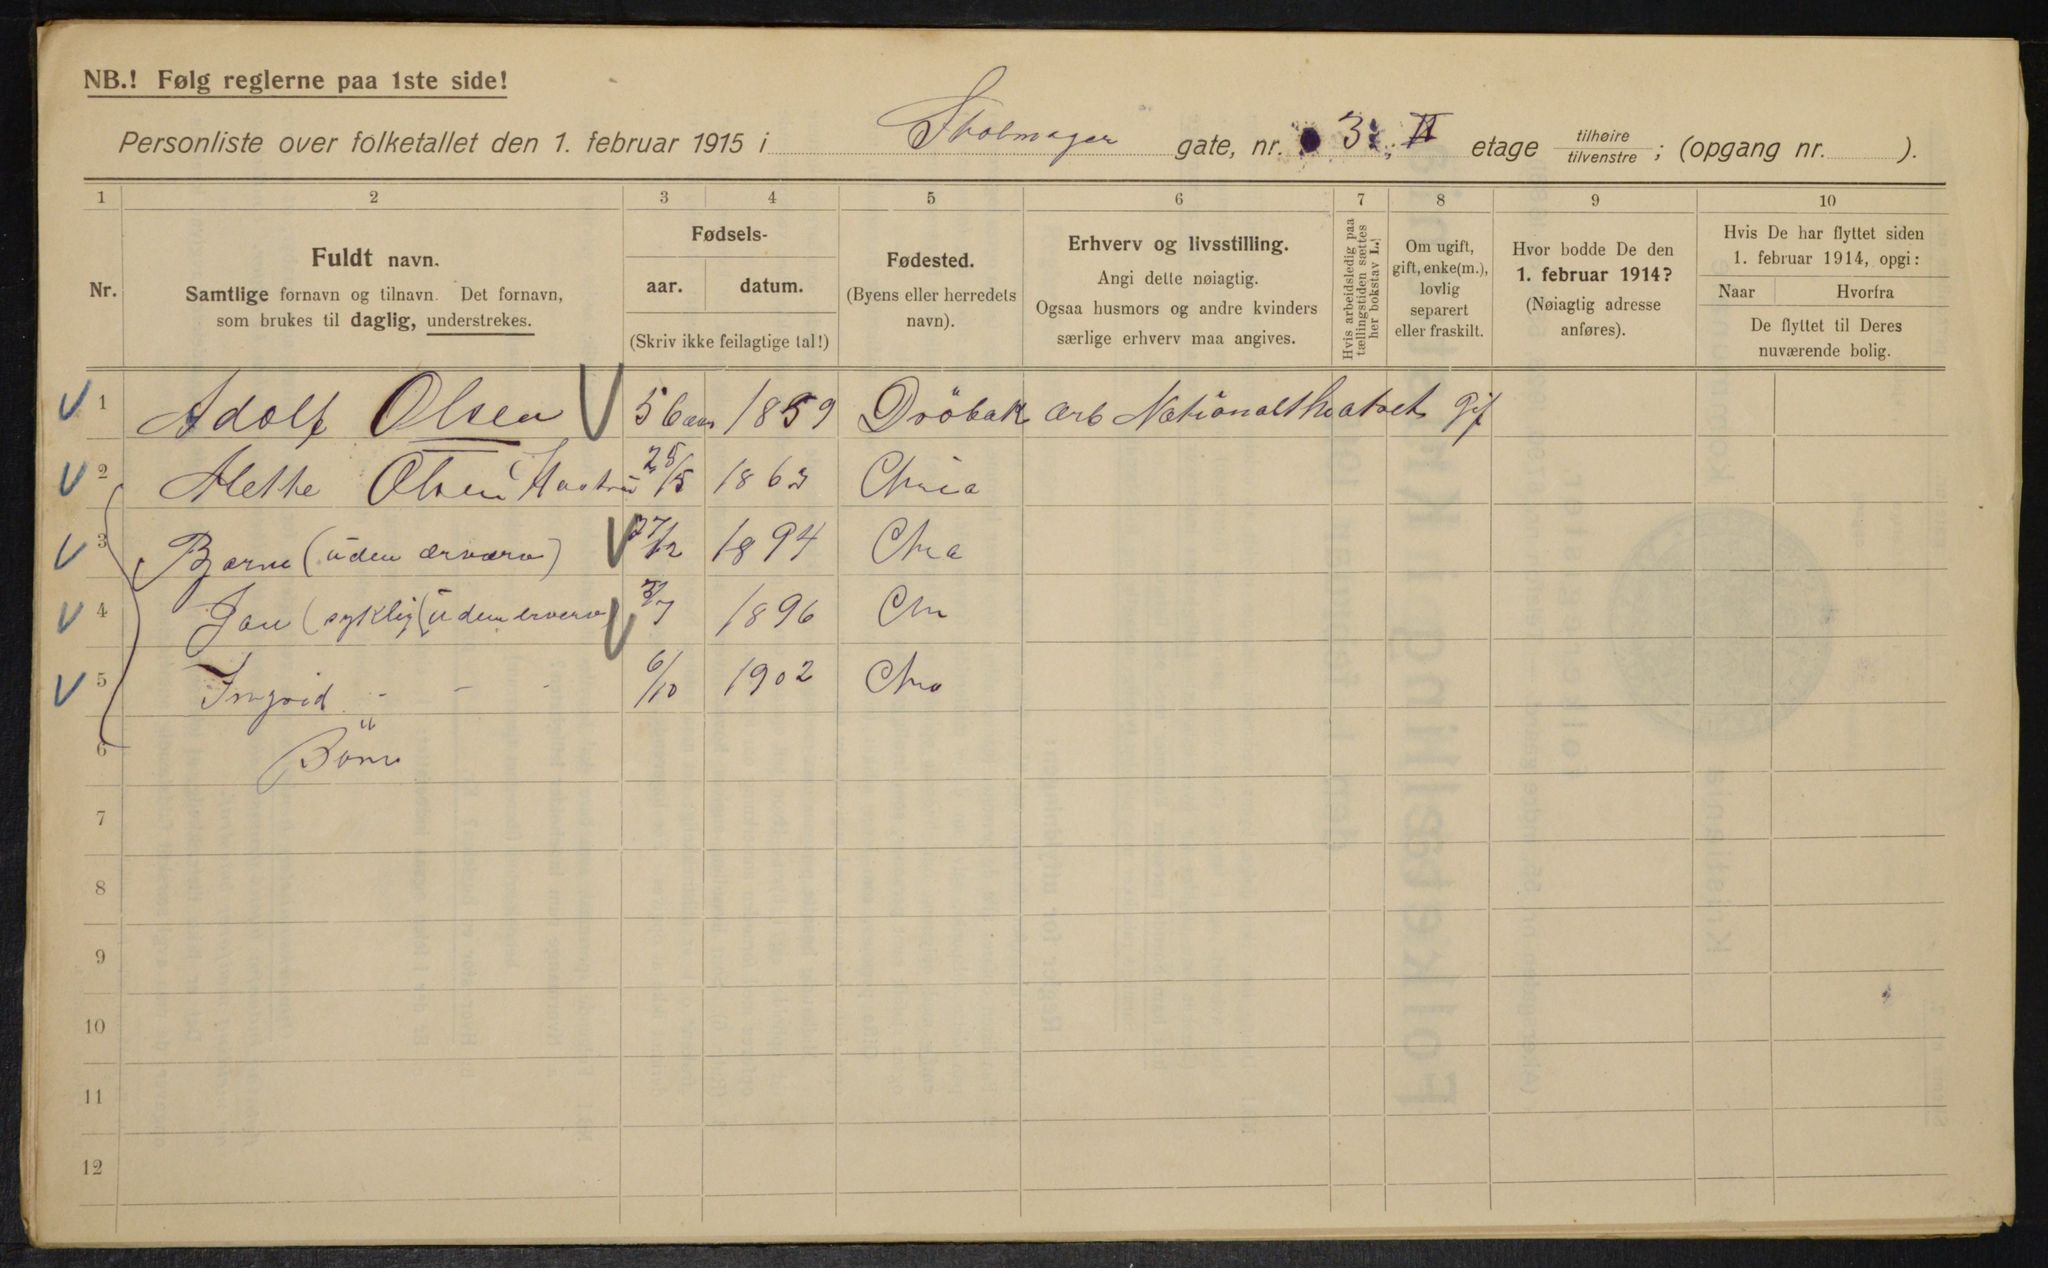 NB.! Følg reglerne paa 1ste side!
Personliste over folketallet den 1. februar 1915 i Skolmager gate, nr. 3; II etage tilhøire/tilvenstre; (opgang nr. ).
1 2 3 4 5 6 7 8 9 10
Nr.
Fuldt navn.
Samtlige fornavn og tilnavn. Det fornavn,
som brukes til daglig, understrekes.
Fødsels-
aar. datum.
(Skriv ikke feilagtige tal!)
Fødested.
(Byens eller herredets
navn).
Erhverv og livsstilling.
Angi dette nøiagtig.
Ogsaa husmors og andre kvinders
særlige erhverv maa angives.
Hvis arbeidsledig paa
tællingstiden sættes
her bokstav L.!
Om ugift,
gift, enke(m.),
lovlig
separert
eller fraskilt.
Hvor bodde De den
1. februar 1914?
(Nøiagtig adresse
anføres).
Hvis De har flyttet siden
1. februar 1914, opgi:
Naar Hvorfra
De flyttet til Deres
nuværende bolig.
1 Adolf Olsen 56 aar 1859 Dröbak arb Nationaltheatret gif
2 Alethe Olsen Hustru 25/5 1863 Chria
3 Bjarne (uden ærværv) 27/12 1894 Chra
4 Jan (syklig (uden erverv 7 1896 Chr
5 Ingrid - - - 6/10 1902 Chra
6 Börn
7
8
9
10
11
12